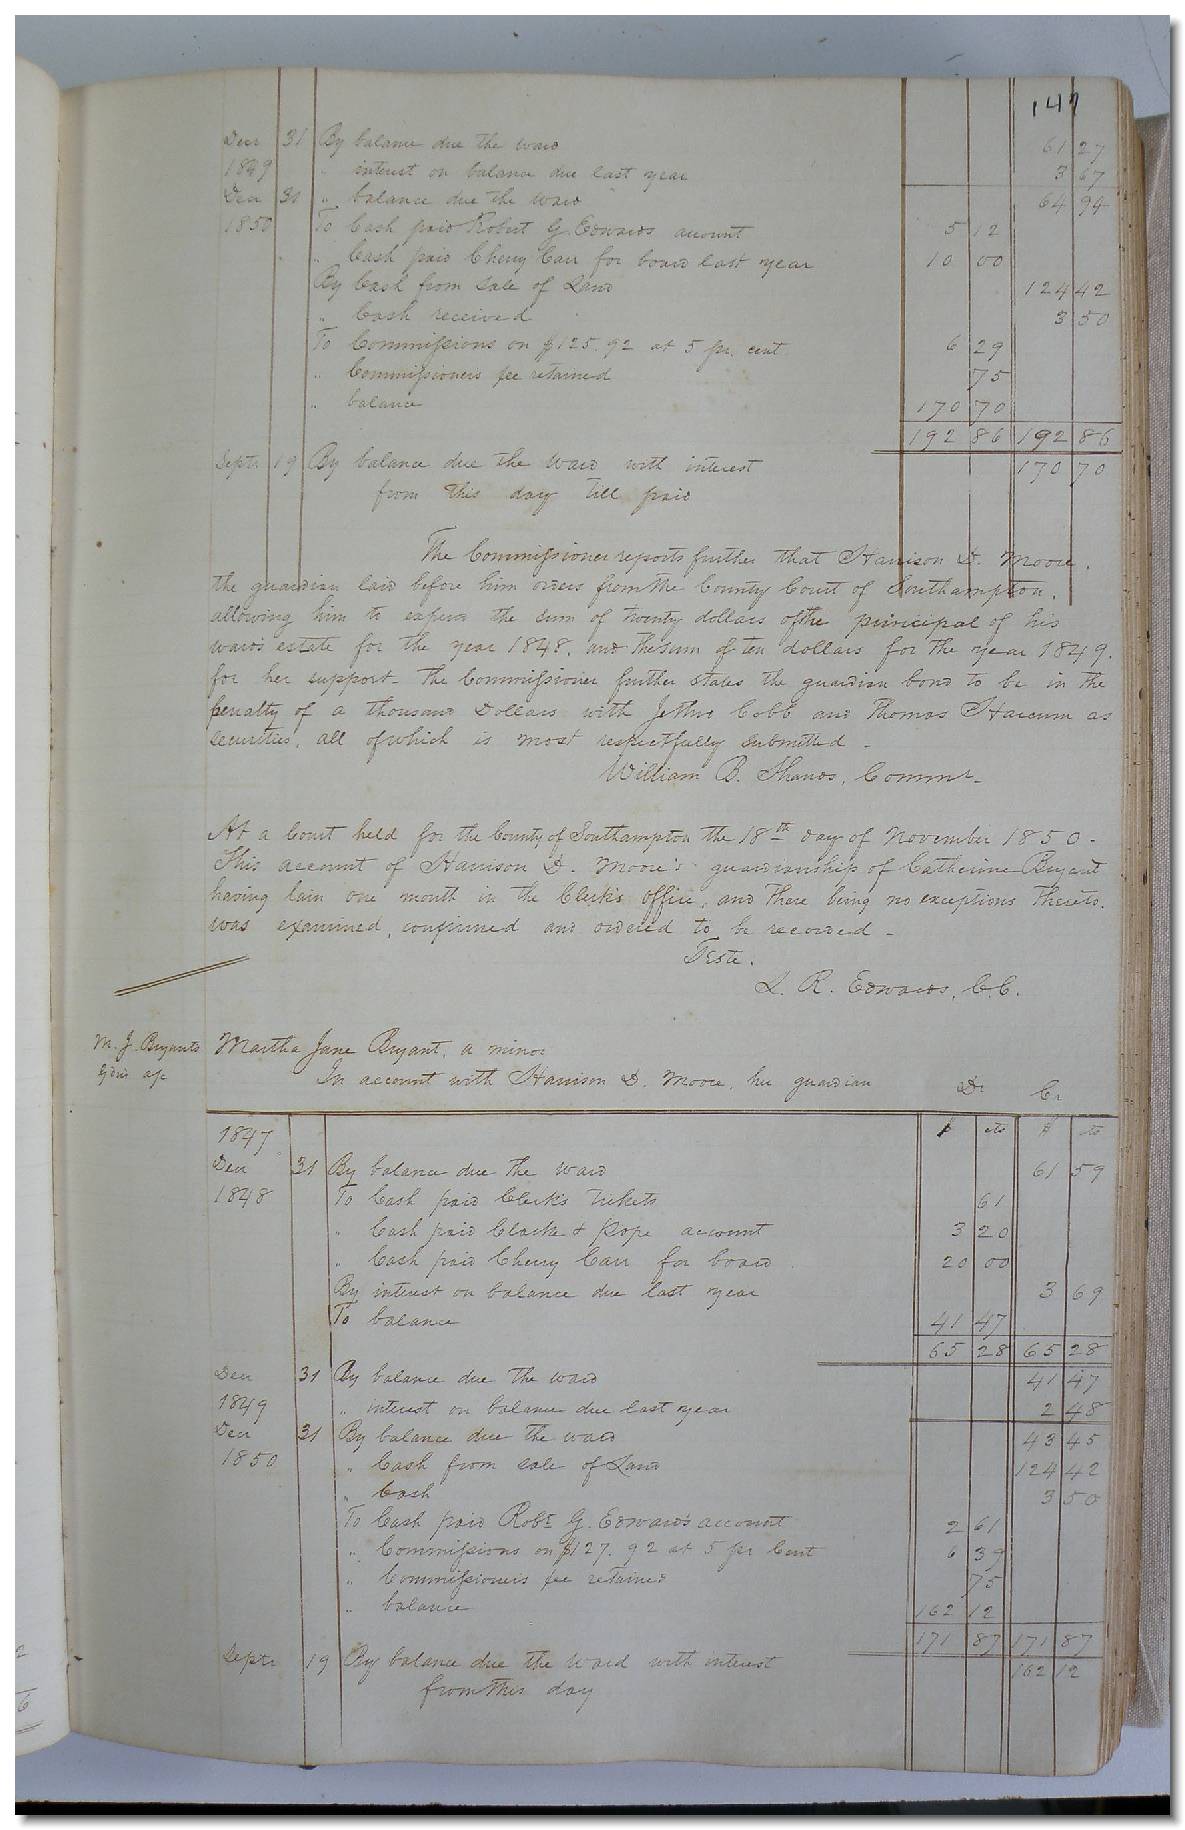 147
Decr 31 By balance due the ward 61 27
1849 " interest on balance due last year 3 67
Decr 31 " balance due the ward 64 94
1850 To Cash paid Robert G. Edwards account 5 12
" Cash paid Cherry Carr for board last year 10 00
By Cash from sale of Land 124 42
" Cash received 3 50
To Commissions on $125.92 at 5 pr. cent 6 29
" Commissioners fee retained 75
" balance 170 70
192 86 192 86
Septr 19 By balance due the ward with interest 170 70
from this day till paid
The Commissioner reports further that Harrison D. Moore,
the guardian laid before him orders from the County Court of Southampton,
allowing him to expend the sum of twenty dollars of the principal of his
wards estate for the year 1848. and the sum of ten dollars for the year 1849.
for her support - the Commissioner further states the guardian bond to be in the
penalty of a thousand Dollars with Jethro Cobb and Thomas Harcum as
securities, all of which is most respectfully submitted -
William B. Shands, Commr -
At a Court held for the County of Southampton the 18th day of November 1850 -
This account of Harrison D. Moore's guardianship of Catherine Bryant
having lain one month in the Clerk's office, and there being no exceptions thereto.
was examined, confirmed and ordered to be recorded -
Teste.
L. R. Edwards, C.C.
M. J. Bryants
Gdns a/c
Martha Jane Bryant, a minor
In account with Harrison D. Moore, her guardian Dr Cr
1847 $ cts $ cts
Decr 31 By balance due the ward 61 59
1848 To Cash paid Clerks tickets 61
" Cash paid Clarke & Pope account 3 20
" Cash paid Cherry Carr for board 20 00
By interest on balance due last year 3 69
To balance 41 47
65 28 65 28
Decr 31 By balance due the ward 41 47
1849 " interest on balance due last year 2 48
Decr 31 By balance due the ward 43 45
1850 " Cash from sale of Land 124 42
" Cash 3 50
To Cash paid Robt G. Edwards account 2 61
" Commissions on $127.92 at 5 pr Cent 6 39
" Commissioners fee retained 75
" balance 162 12
171 87 171 87
Septr 19 By balance due the ward with interest 162 12
from this day
2
6